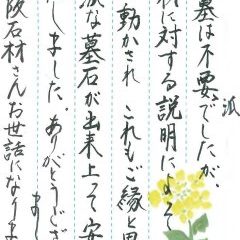 墓は不要でしたが、
派
に対する説明によって
動かされ これもご縁と思
派な墓石が出来上って安
しました。ありがとうござ
まし
阪石材さんお世話になりま